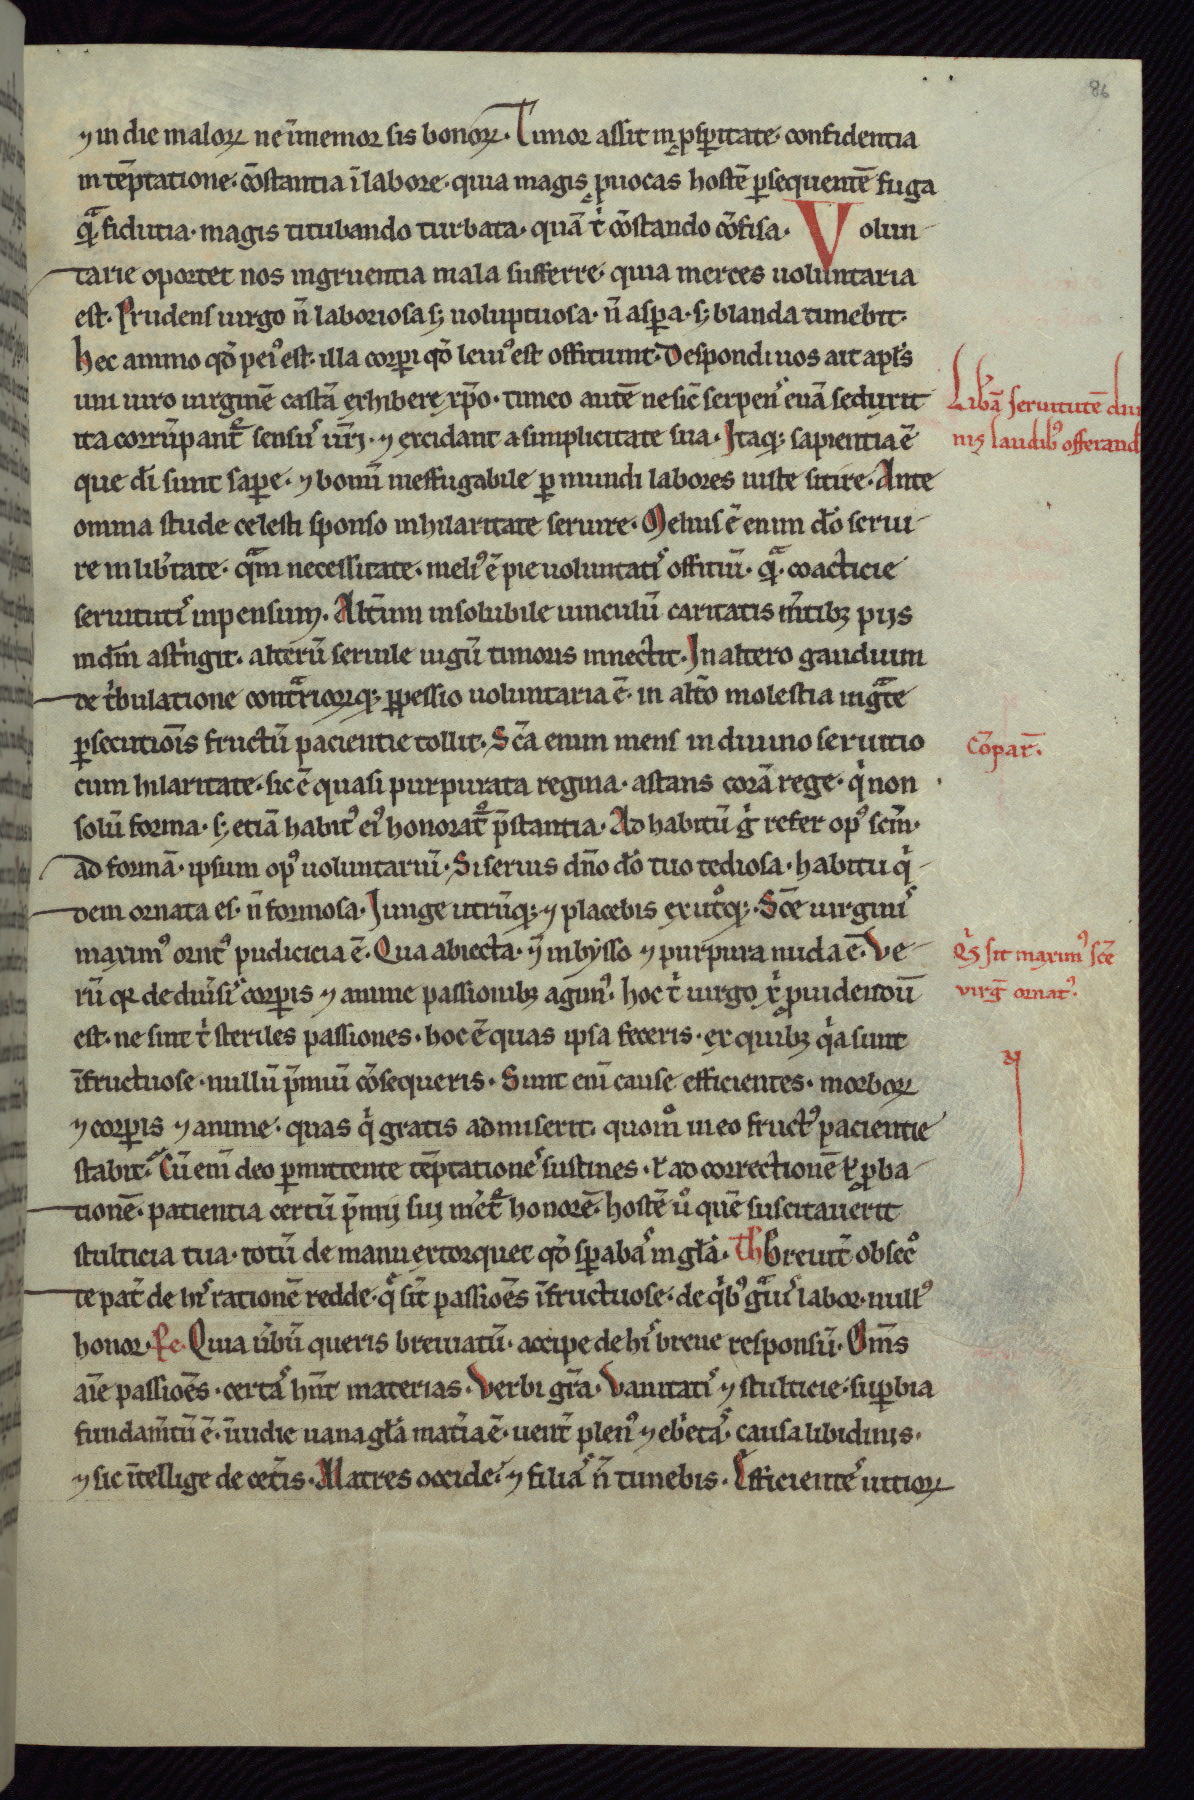 86
⁊ in die maloꝝ ne īmemor sis bonoꝝ. Timor assit in ꝓsꝑitate. confidentia
in tēptatione. cōstantia ī labore. quia magis ꝓuocas hostē ꝑsequentē fuga
quā fidutia. magis titubando turbata. quā t̍ cōstando cōfisa. Volun-
tarie oportet nos ingruentia mala sufferre. quia merces uoluntaria
est. Prudens uirgo n̄ laboriosa sꝫ uoluptuosa. n̄ asꝑa. sꝫ blanda timebit.
hec animo qd̄ pei᷒ est. illa corꝑi qd̄ leui᷒ est offitiunt. Despondi uos ait apl̄s
uni uiro uirginē castā exhibere xp̄o. timeo autē ne sic̄ serpens euā seduxit
ita corrūpant̄ sensus ur̄i. ⁊ excidant a simplicitate sua. Itaqꝫ sapientia ē
que dī sunt saꝑe. ⁊ bonū ineffugabile ꝑ mundi labores iuste sitire. Ante
omnia stude celesti sponso in hilaritate seruire. Melius ē enim dō serui-
re in lib̄tate. quā in necessitate. meli᷒ ē pie uoluntatis offitiū. quā coacticie
seruitutis inpensum. Altūm insolubile uinculū caritatis mtibꝫ pijs
in dm̄ astͥngit. alterū seruile iugū timoris innectit. In altero gaudium
de tͥbulatione contͣricorqꝫ ꝑpessio uoluntaria ē. in altō molestia ingͣte
ꝑsecutiōis fructū pacientie tollit. Sc̄a enim mens in diuino seruitio
cum hilaritate. sic ē quasi purpurata regina. astans corā rege. qͥ non
solū forma. sꝫ etiā habit᷒ ei᷒ honorat̄ p̄stantia. Ad habitū gͥ refer op᷒ scm̄.
ad formā. ipsum op᷒ uoluntariū. Si seruis dn̄o dō tuo tediosa. habitu qͥ-
dem ornata es. n̄ formosa. Iunge utrūqꝫ. ⁊ placebis ex utͦqꝫ. Sc̄e uirginis
maxim᷒ ornt᷒ pudicicia ē. Qua abiecta. ⁊ in bysso ⁊ purpura nuda ē. Ve-
rū qꝛ de diūsis corꝑis ⁊ anime passionibꝫ agim᷒. hoc t̍ uirgo xͥ ꝓuidendū
est. ne sint t̍ steriles passiones. hoc ē quas ipsa feceris. ex quibꝫ qͥa sunt
īfructuose. nullū p̄miū cōsequeris. Sunt enī cause efficientes. morboꝝ
⁊ corꝑis ⁊ anime. quas qͥ gratis admiserit. quom̊ in eo fruct᷒ pacientie
stabit. Cū enī deo ꝑmittente tēptationes sustines. ł ad correctionē ł ꝓba-
tionē. patientia certū p̄mij sui mēt̄ honorē. hostē ů quē suscitauerit
stulticia tua. totū de manu extorquet qd̄ sꝑabas in gl̄a. Th breuit̄ obsecͦ
te pat̄ de his rationē redde. q̄ sīt passiōes īfructuose. de qͥb᷒ gͣuis labor. null᷒
honor. Pe. Quia ūbū queris breuiatū. accipe de his breue responsū. Om̄s
aīe passiōes. certas hn̄t materias. Verbi gr̄a. Vanitatis ⁊ stulticie. suꝑbia
fundam̄tū ē. īuidie uana gl̄a mat̄ia ē. uent̄ plen᷒ ⁊ eb̄etas. causa libidinis.
⁊ sic ītellige de cet̄is. Matres occide. ⁊ filias n̄ timebis. Efficientes uitioꝝ
Lib̄ā seruitutē diui
nis laudib᷒ offerand
Cōpar̄.
Qͥs sit maxim᷒ sc̄e
virḡ ornat᷒.